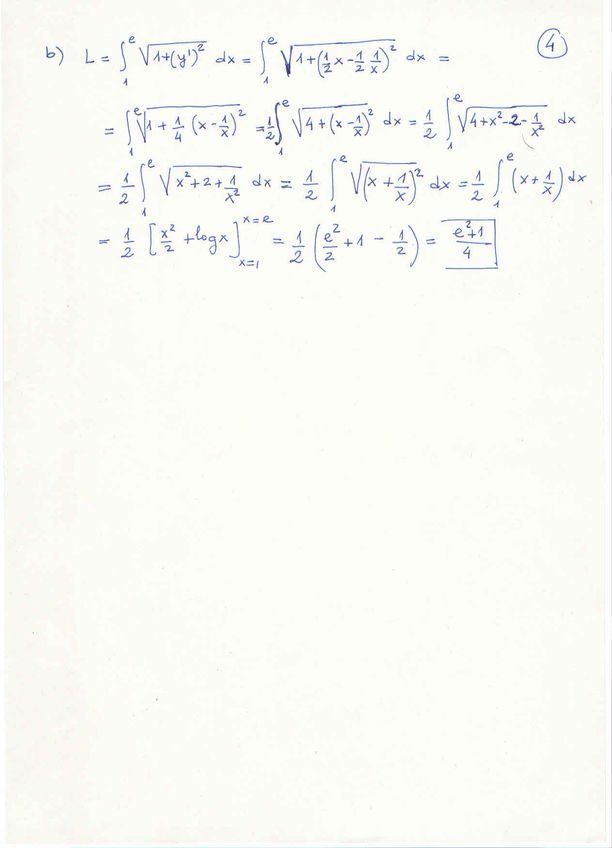 ④
b) L = ∫₁ᵉ √(1+(y')²) dx = ∫₁ᵉ √(1+(1/2 x - 1/2 1/x)²) dx =
= ∫₁ᵉ √(1 + 1/4 (x - 1/x)²) = 1/2 ∫₁ᵉ √(4 + (x - 1/x)²) dx = 1/2 ∫₁ᵉ √(4+x²-2-1/x²) dx
= 1/2 ∫₁ᵉ √(x²+2+1/x²) dx = 1/2 ∫₁ᵉ √((x + 1/x)²) dx = 1/2 ∫₁ᵉ (x + 1/x) dx
= 1/2 [x²/2 + log x]ₓ₌₁ˣ⁼ᵉ = 1/2 (e²/2 + 1 - 1/2) = (e²+1)/4